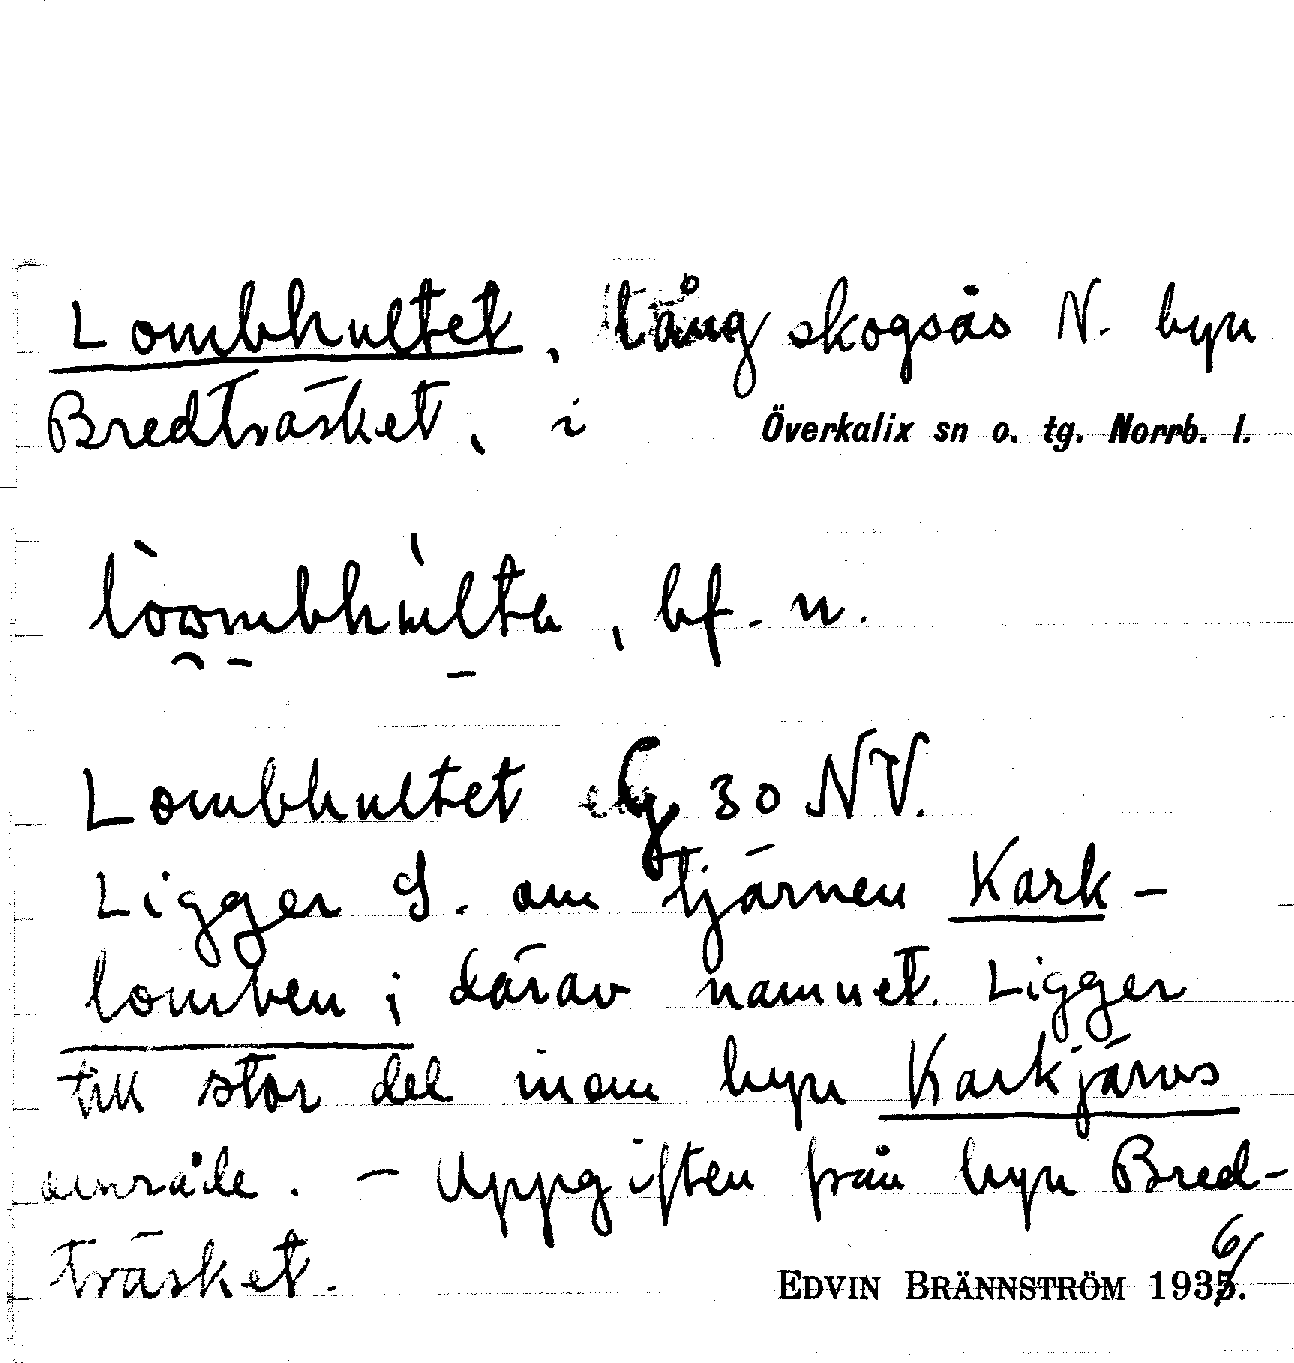 Lombhultet, lång skogsås N. byn
Bredträsket, i Överkalix sn o. tg. Norrb. l.
bf. n.
Lombhultet 30 NV.
Ligger S. om tjärnen Kark-
lomben; därav namnet. Ligger
till stor del inom byn Karkjärvs
område. – Uppgiften från byn Bred-
träsket.
EDVIN BRÄNNSTRÖM 1936.